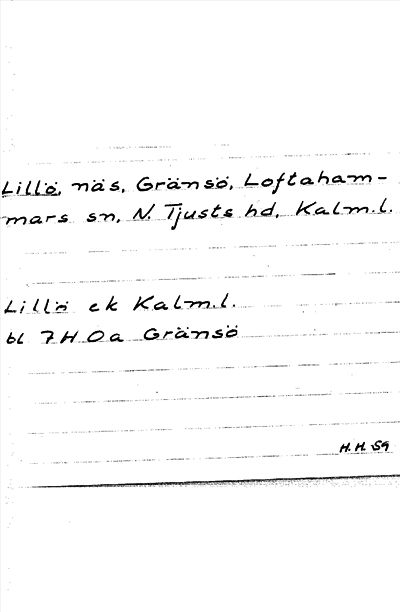 Lillö, näs, Gränsö, Loftaham-
mars sn, N. Tjusts hd, Kalm.l.
Lillö ek Kalm.l.
bl 7H 0a Gränsö
H.H. 59